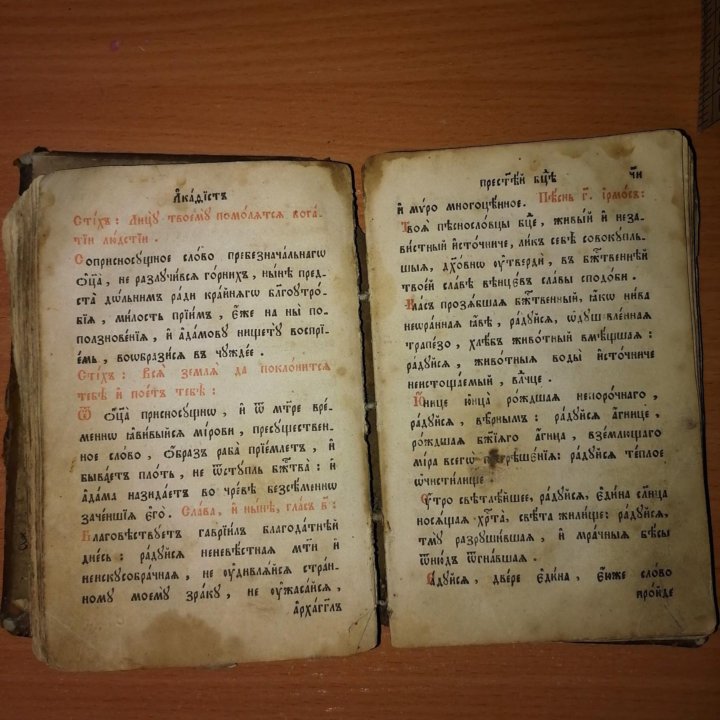 А҆ка́ѳїстъ
Сті́хъ : Лицꙋ̀ твоемꙋ̀ помо́лѧтсѧ бога́-
тїи лю́дстїи .
Соприсносꙋ́щное сло́во пребезнача́льнагѡ
ѻ҆ц҃а̀ , не разлꙋчи́всѧ го́рнихъ , ны́нѣ предъ-
ста̀ до́льнимъ ра́ди кра́йнѧгѡ бл҃гоꙋтро́-
бїѧ , ми́лость прїи́мъ , є҆́же на ны̀ по-
ползнове́нїѧ , и҆ а҆да́мовꙋ нищетꙋ̀ воспрї-
е́мь , воѡбрази́сѧ въ чꙋжде́е .
Сті́хъ : Всѧ̀ землѧ̀ да покло́нитсѧ
тебѣ̀ и҆ пое́тъ тебѣ̀ :
Ѿ ѻ҆ц҃а̀ присносꙋ́щнѡ , и҆ ѿ мт҃ре вре́-
меннѡ ꙗ҆ви́выйсѧ мі́рови , пресꙋ́ществен-
ное сло́во , ѻ҆́бразъ раба̀ прїе́млетъ , и҆
быва́етъ пло́ть , не ѿстꙋ́пль бж҃тва̀ : и҆
а҆да́ма назида́етъ во чре́вѣ безсѣ́меннѡ
заче́ншїѧ є҆го̀ . Сла́ва , и҆ ны́нѣ , гла́съ в҃ :
Благовѣ́ствꙋетъ гаврїи́лъ благода́тнѣй
дне́сь : ра́дꙋйсѧ неневѣ́стнаѧ мт҃и и҆
неискꙋсобра́чнаѧ , не ᲂу҆дивлѧ́йсѧ стра́н-
номꙋ моемꙋ̀ зра́кꙋ , не ᲂу҆жаса́йсѧ ,
а҆рха́гг҃лъ
прест҃ѣ́й бц҃ѣ чи҃
и҆ мѵ́ро многоцѣ́нное . Пѣ́снь г҃ . і҆рмо́съ :
Твоѧ̑ пѣсносло́вцы бц҃е , живы́й и҆ неза-
ви́стный и҆сто́чниче , ли́къ себѣ̀ совокꙋ́пль-
шыѧ , дꙋхо́внѡ ᲂу҆твердѝ , въ бж҃твеннѣй
твое́й сла́вѣ вѣнцє́въ сла́вы сподо́би .
Кла́съ прозѧ́бшаѧ бж҃твенный , ꙗ҆́кѡ ни́ва
неѡра́ннаѧ ꙗ҆́вѣ , ра́дꙋйсѧ , ѡ҆дꙋшевле́ннаѧ
трапе́зо , хлѣ́бъ живо́тный вмѣ́щшаѧ :
ра́дꙋйсѧ , живо́тныѧ воды̀ и҆сто́чниче
неистоща́емый , влⷣчце .
Ю҆́нице ю҆нца̀ ро́ждшаѧ непоро́чнаго ,
ра́дꙋйсѧ , вѣ̑рнымъ : ра́дꙋйсѧ а҆́гнице ,
ро́ждшаѧ бж҃їѧго а҆́гнца , взе́млющаго
мі́ра всегѡ̀ прегрѣшє́нїѧ : ра́дꙋйсѧ те́плое
ѡ҆чисти́лище .
Оу҆́тро свѣтлѣ́йшее , ра́дꙋйсѧ , є҆ди́на сл҃нца
носѧ́щаѧ хр҃та̀ , свѣ́та жили́ще : ра́дꙋйсѧ ,
тмꙋ̀ разрꙋши́вшаѧ , и҆ мра̑чныѧ бѣ́сы
ѿню́дъ ѿгна́вшаѧ .
Ра́дꙋйсѧ , две́ре є҆ди́на , є҆́юже сло́во
про́йде